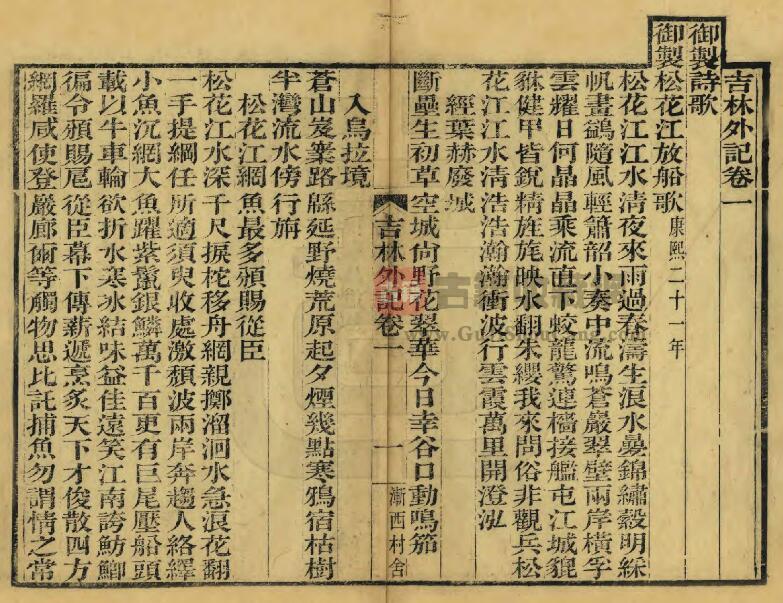 吉林外記卷一
御製詩歌
御製松花江放船歌康熙二十一年
松花江江水清夜來雨過春濤生浪水疊錦繡縠明綵
帆畫鷁隨風輕簫韶小奏中流鳴蒼巖翠壁兩岸橫孚
雲耀日何晶晶乘流直下蛟龍驚連檣接艦屯江城貔
貅健甲皆銳精旌旄映水翻朱纓我來問俗非觀兵松
花江江水清浩浩瀚瀚衝波行雲霞萬里開澄泓
經葉赫廢城
斷壘生初草空城尙野花翠華今日幸谷口動鳴笳
吉林外記卷一
一
漸西村舍
入烏拉境
蒼山岌嶪路緜延野燒荒原起夕煙幾點寒鴉宿枯樹
半灣流水傍行旃
松花江網魚最多頒賜從臣
松花江水深千尺捩柁移舟網親擲溜洄水急浪花翻
一手提綱任所適須臾收處激頹波兩岸奔趨人絡繹
小魚沉網大魚躍紫鬣銀鱗萬千百更有巨尾壓船頭
載以牛車輪欲折水寒冰結味益佳遠笑江南誇魴鯽
徧令頒賜扈從臣幕下傳薪遞烹炙天下才俊散四方
網羅咸使登巖廊爾等觸物思比託捕魚勿謂情之常